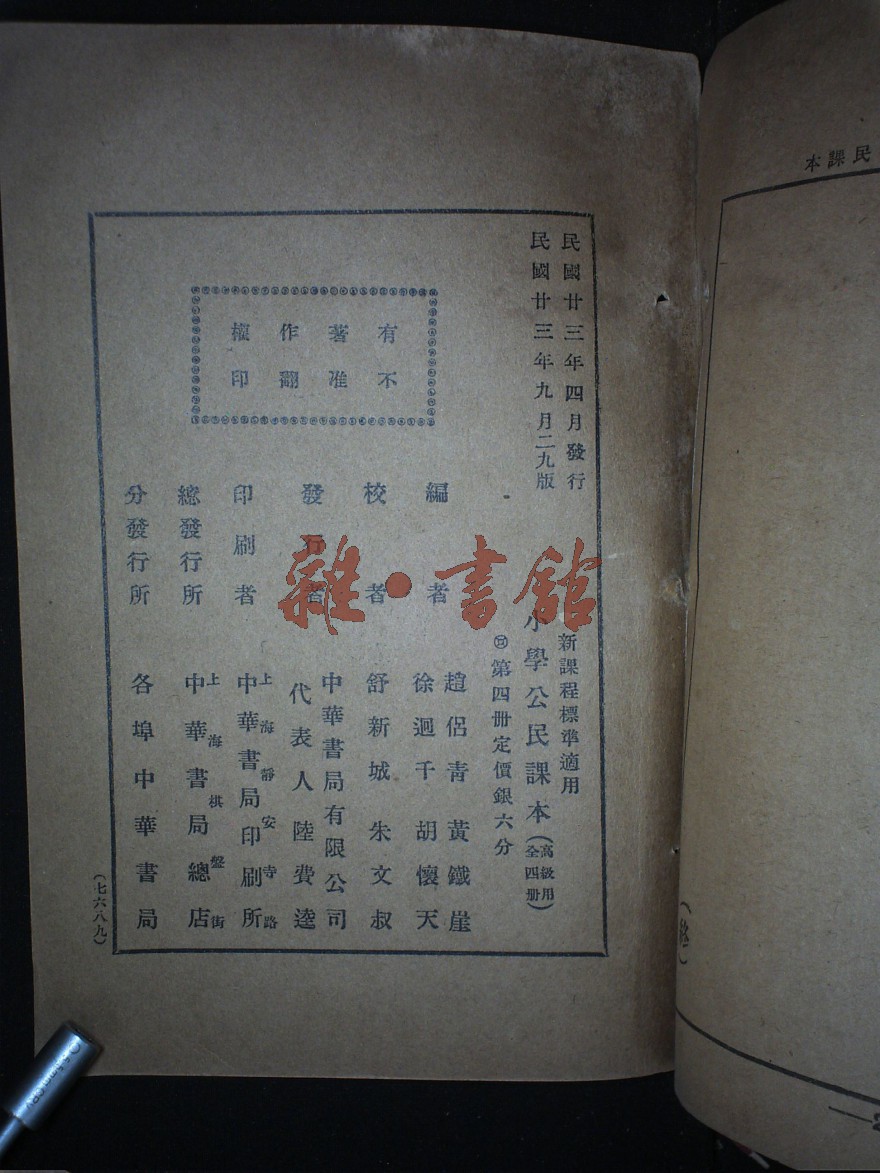 民國廿三年四月發行
民國廿三年九月二九版
有著作權
不准翻印
新課程標準適用
小學公民課本（高級用全四册）
第四册定價銀六分
編者
趙侶青 黃鐵崖
徐迥千 胡懷天
校者
舒新城 朱文叔
發行者
中華書局有限公司
代表人 陸費逵
印刷者
上海靜安寺路
中華書局印刷所
總發行所
上海棋盤街
中華書局總店
分發行所
各埠中華書局
（七六八九）
雜·書館
民課本
（終）
0.5mm